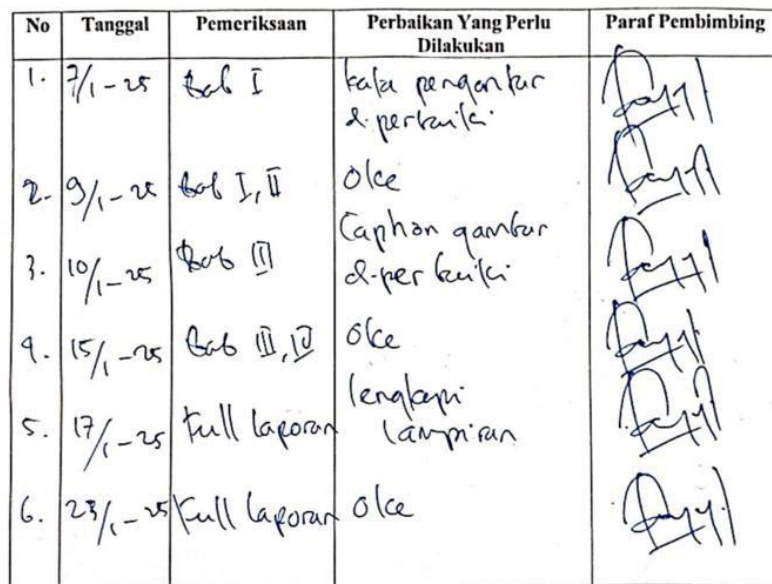 No Tanggal Pemeriksaan Perbaikan Yang Perlu Dilakukan Paraf Pembimbing
1. 7/1-25 Bab I kata pengantar
di perbaiki
2. 9/1-25 Bab I, II Oke
3. 10/1-25 Bab III Caption gambar
di perbaiki
4. 15/1-25 Bab III, IV Oke
5. 17/1-25 Full laporan lengkapi
lampiran
6. 23/1-25 Full laporan Oke